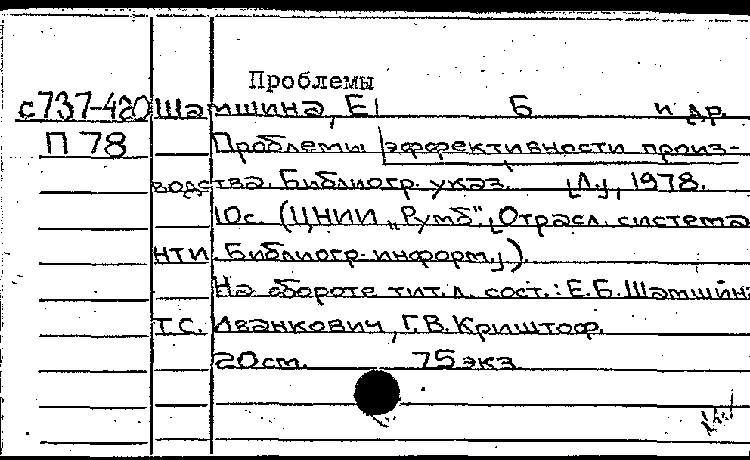 Проблемы
с737-420 Шамшина, Е Б и др.
П 78 Проблемы эффективности произ-
водства. Библиогр. указ. [Л.], 1978.
10с. (ЦНИИ „Румб". [Отрасл. система
НТИ. Библиогр. информ.]).
На обороте тит.л. сост.: Е.Б. Шамшина
Т.С. Иванкович, Г.В. Криштоф.
20см. 75 экз